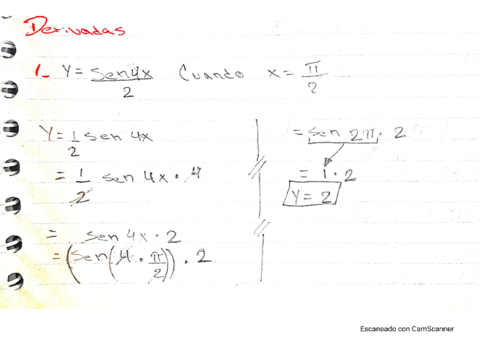 Derivadas
1_ Y = Sen4x / 2 Cuando x = π/2
Y = 1/2 sen 4x
= 1/2 sen 4x · 4
= sen 4x · 2
= (Sen(4 · π/2)) · 2
= sen 2π · 2
= 1 · 2
Y = 2
Escaneado con CamScanner